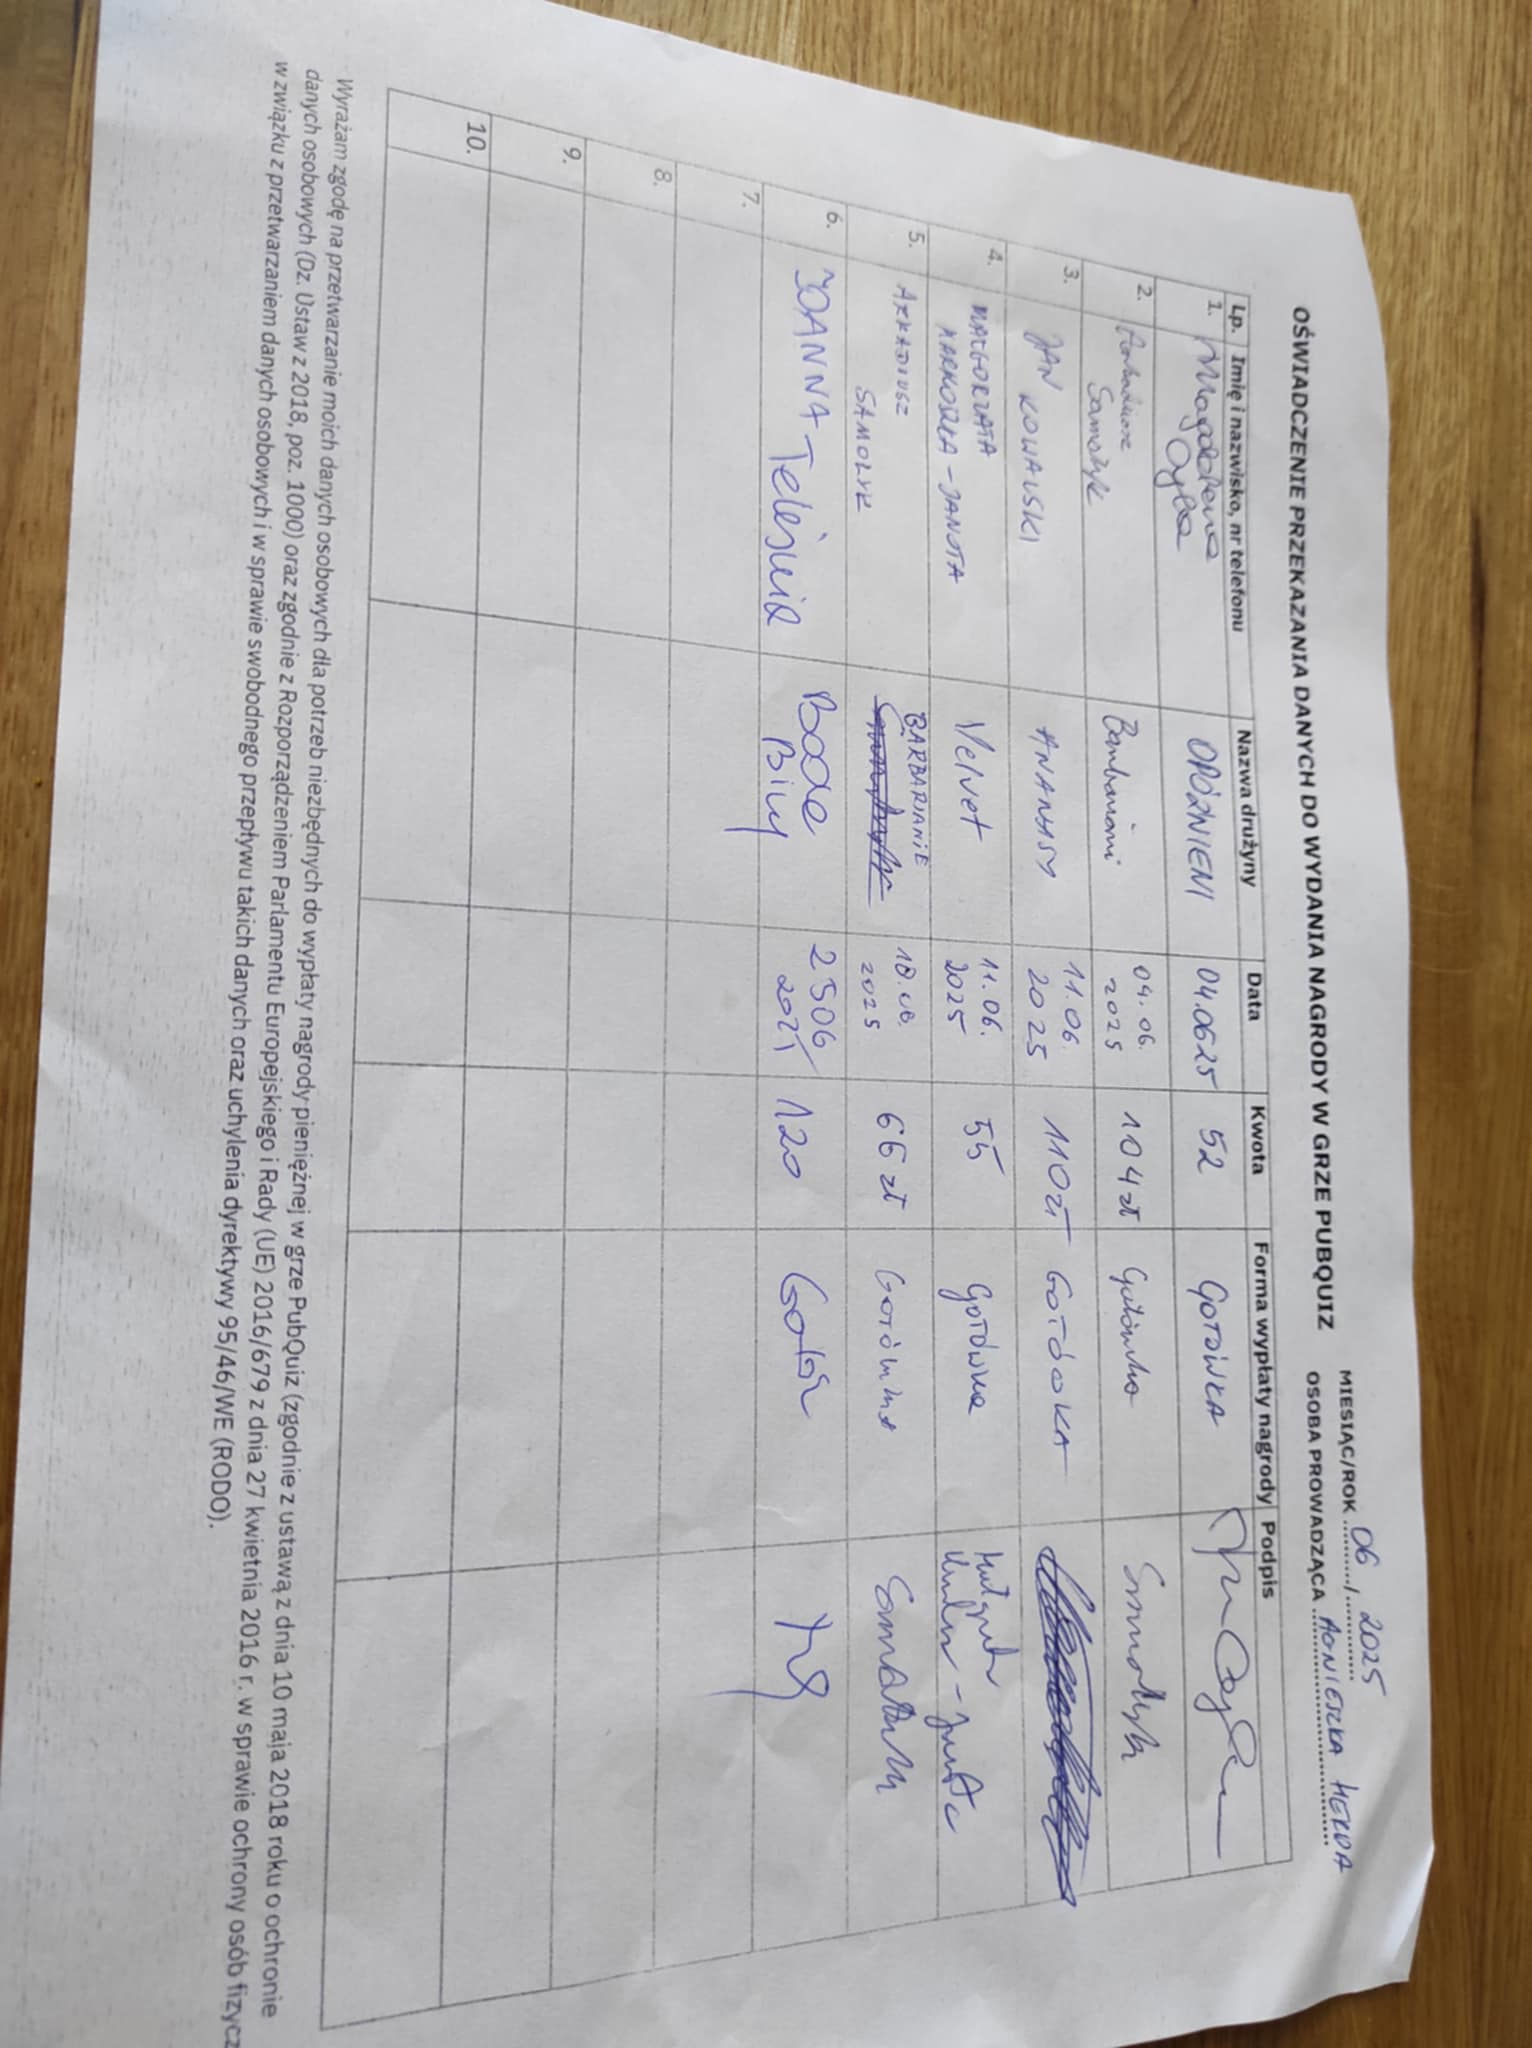 MIESIĄC/ROK 06 / 2025
OŚWIADCZENIE PRZEKAZANIA DANYCH DO WYDANIA NAGRODY W GRZE PUBQUIZ
OSOBA PROWADZĄCA AGNIESZKA HERDA
Lp. Imię i nazwisko, nr telefonu Nazwa drużyny Data Kwota Forma wypłaty nagrody Podpis
1. Magdalena OPÓŹNIENI 04.06.25 52 GOTÓWKA
2. Barbarianie 04.06. 2025 104 zł Gotówka
3. JAN KOWALSKI ANANASY 11.06. 2025 110 ZŁ GOTÓWKA
4. MAŁGORZATA - JANOTA Velvet 11.06. 2025 55 GOTÓWKA
5. ARKADIUSZ BARBARIANIE 18.06. 2025 66 zł Gotówka
6. JOANNA 2506 120
7.
8.
9.
10.
Wyrażam zgodę na przetwarzanie moich danych osobowych dla potrzeb niezbędnych do wypłaty nagrody pieniężnej w grze PubQuiz (zgodnie z ustawą z dnia 10 maja 2018 roku o ochronie
danych osobowych (Dz. Ustaw z 2018, poz. 1000) oraz zgodnie z Rozporządzeniem Parlamentu Europejskiego i Rady (UE) 2016/679 z dnia 27 kwietnia 2016 r. w sprawie ochrony osób fizycz
w związku z przetwarzaniem danych osobowych i w sprawie swobodnego przepływu takich danych oraz uchylenia dyrektywy 95/46/WE (RODO).